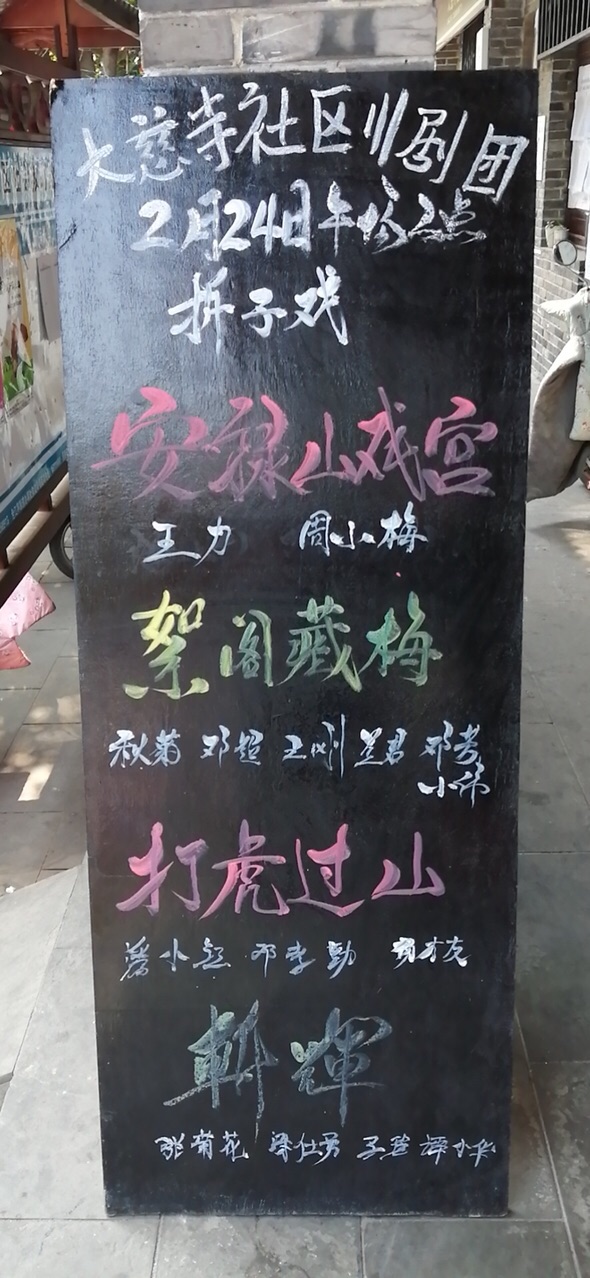 大慈寺社区川剧团
2月24日午场2点
折子戏
安禄山戏宫
王力 周小梅
絮阁藏梅
秋菊 邓超 王刚 兰君 邓芳
小师
打虎过山
小 邓李勤 友
斬輝
张菊花